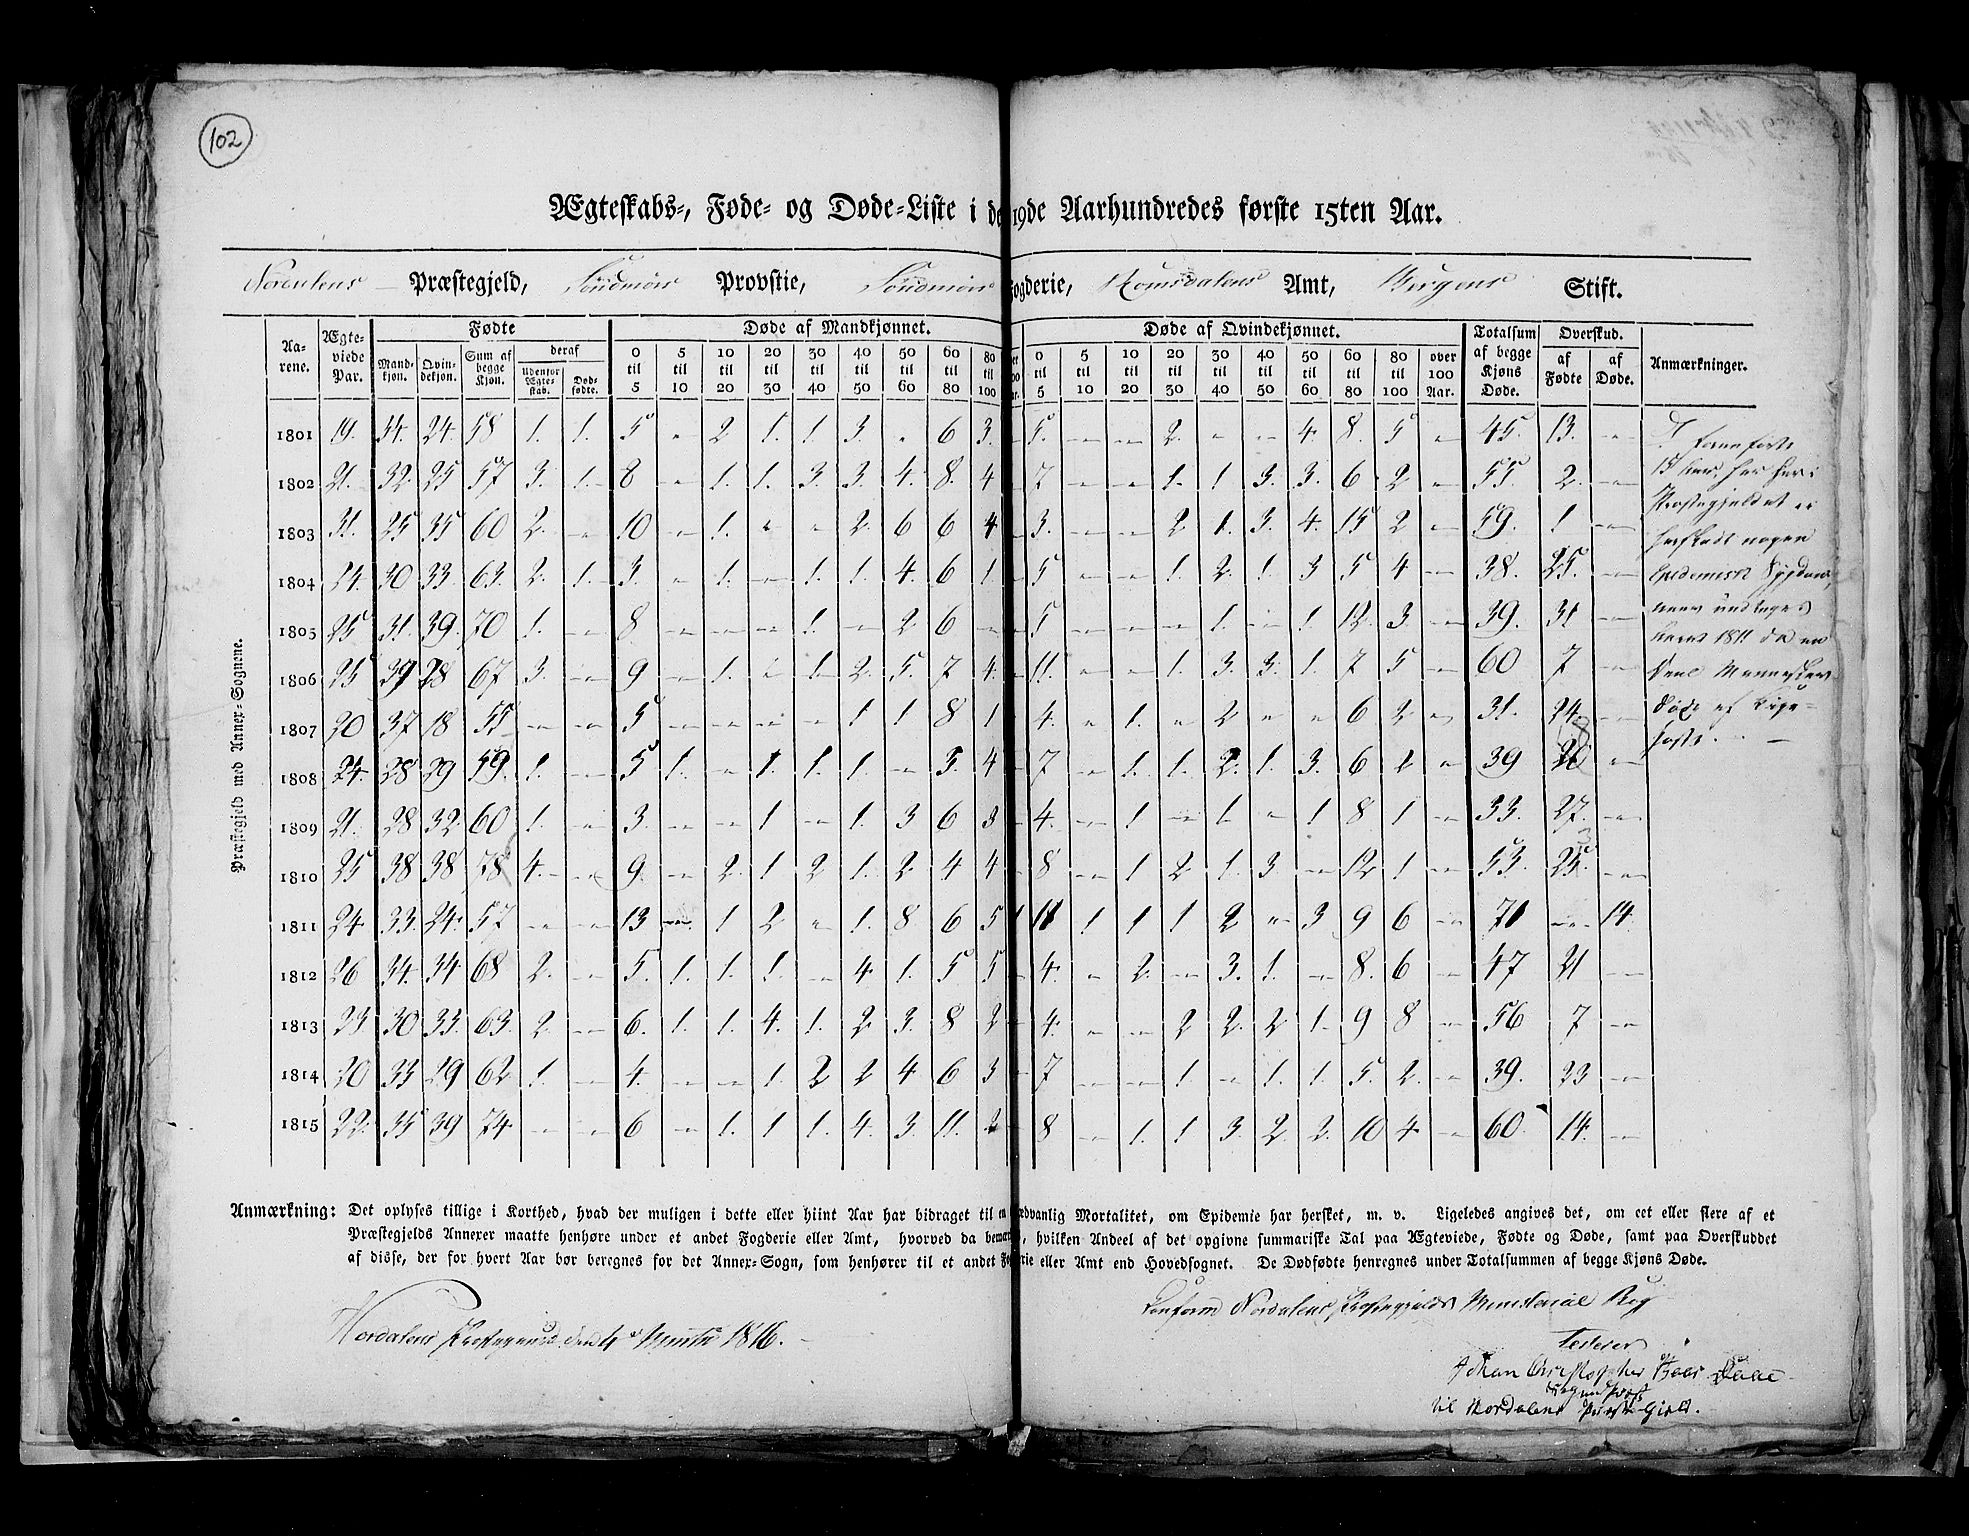 102
Ægteskabs-, Føde- og Døde-Liste i de 19de Aarhundredes første 15ten Aar.
Nordalens Præstegjeld, Söndmörs Provstie, Söndmörs Fogderie, Romsdalens Amt, Bergens Stift.
Aarene. Ægteviede Par. Fødte Døde af Mandkjønnet. Døde af Qvindekjønnet. Totalsum af begge Kjøns Døde. Overskud. Anmærkninger.
Mandkjøn. Qvindekjøn. Sum af begge Kjøn. deraf Udenfor Ægtestab. Dødfødte. 0 til 5 5 til 10 10 til 20 20 til 30 30 til 40 40 til 50 50 til 60 60 til 80 80 til 100 0 til 5 5 til 10 10 til 20 20 til 30 30 til 40 40 til 50 50 til 60 60 til 80 80 til 100 over 100 Aar. af Fødte af Døde.
Præstegjeld med Annex-Sognene.
1801 19. 34. 24. 58 1. 1. 5 - 2 1. 1 3. - 6 3. - 5. - - 2. - - 4 8. 5 - 45. 13. -
1802 21. 32. 25 57 3. 1. 8 - 1. 1. 3 3. 4. 8. 4 - 7 - - 1. 1 3. 3. 6 2 - 55. 2. -
1803 31. 25 35 60 2. - 10 - 1. - - 2. 6 6 4 - 3. - - 2 1. 3. 4. 15 2 - 59. 1 -
1804 24. 30 33. 63. 2. 1. 3. - 1. - 1. 1. 4. 6 1 - 5 - - 1. 2. 1. 3 5 4 - 38. 25. -
1805 25 31. 39. 70 1. - 8 - - - 1. - 2 6 - - 5 - - - 1. - 1. 12. 3. - 39. 31 -
1806 25 39 28 67 3. - 9 - 1. - 1. 2. 5. 7 4. - 11. - - 1. 3. 3. 1. 7 5 - 60 7 -
1807 20 37 18 55 - - 5 - - - - 1 1. 8 1 - 4. - 1. - 2 - - 6 2 - 31. 24 -
1808 24. 28 29 59. 1. - 5 1. - 1. 1. 1. - 3. 4 - 7 - 1. 1. 2. 1. 3. 6 1 - 39 20 -
1809 21. 28 32. 60 1. - 3. - - 1 - 1. 3 6 3 - 4. - 1 - 1. - 1 8 1 - 33. 27. -
1810 25 38 38 78 4. - 9. - 2. 1 2 1. 2 4 4 8 - 1 2 1. 3 - 12 1 - 53. 25. -
1811 24. 33. 24. 57 - - 13 - 1 2 - 1. 8 6 5 1 11 1 1 1 2 - 3 9 6 - 71 - 14.
1812 26 34. 34 68 2. - 5. 1. 1. 1. - 4 1. 5 5 - 4. - 2. - 3. 1. - 8. 6 - 47 21 -
1813 23. 30 33. 63. 2. - 6. 1. 1. 4. 1. 2 3. 8 2 - 4. - - 2 2. 2 1. 9 8 - 56 7 -
1814 20 33 29 62 1. - 4. - - 1. 2 2 4 6 3 - 7 - - 1. - 1. 1. 5. 2. - 39. 23 -
1815 22. 35 39 74 - - 6 - 1. 1 1. 4. 3. 11. 2 - 8 - 1. 1 3. 2. 2. 10 4 - 60 14. -
I
15 Aar har her i
Præstegjeldet ei
hersket nogen
Epidemisk Sygdom,
undtages
Aaret 1811 da en
Deel Mennesker
døde af Kige-
hoste. -
Anmærkning: Det oplyses tillige i Korthed, hvad der muligen i dette eller hiint Aar har bidraget til ædvanlig Mortalitet, om Epidemie har hersket, m. v. Ligeledes angives det, om eet eller flere af et
Præstegjelds Annexer maatte henhøre under et andet Fogderie eller Amt, hvorved da bemær, hvilken Andeel af det opgivne summariske Tal paa Ægteviede, Fødte og Døde, samt paa Overskuddet
af disse, der for hvert Aar bør beregnes for det Annex-Sogn, som henhører til et andet Fogderie eller Amt end Hovedsognet. De Dødfødte henregnes under Totalsummen af begge Kjøns Døde.
Conform Nordalens Præstegjelds Ministerial Bog
Nordalens Præstegaard den 4 1816.
Testerer
Johan Christopher Daae
Sognepræst
til Nordalens Præste-Gield.